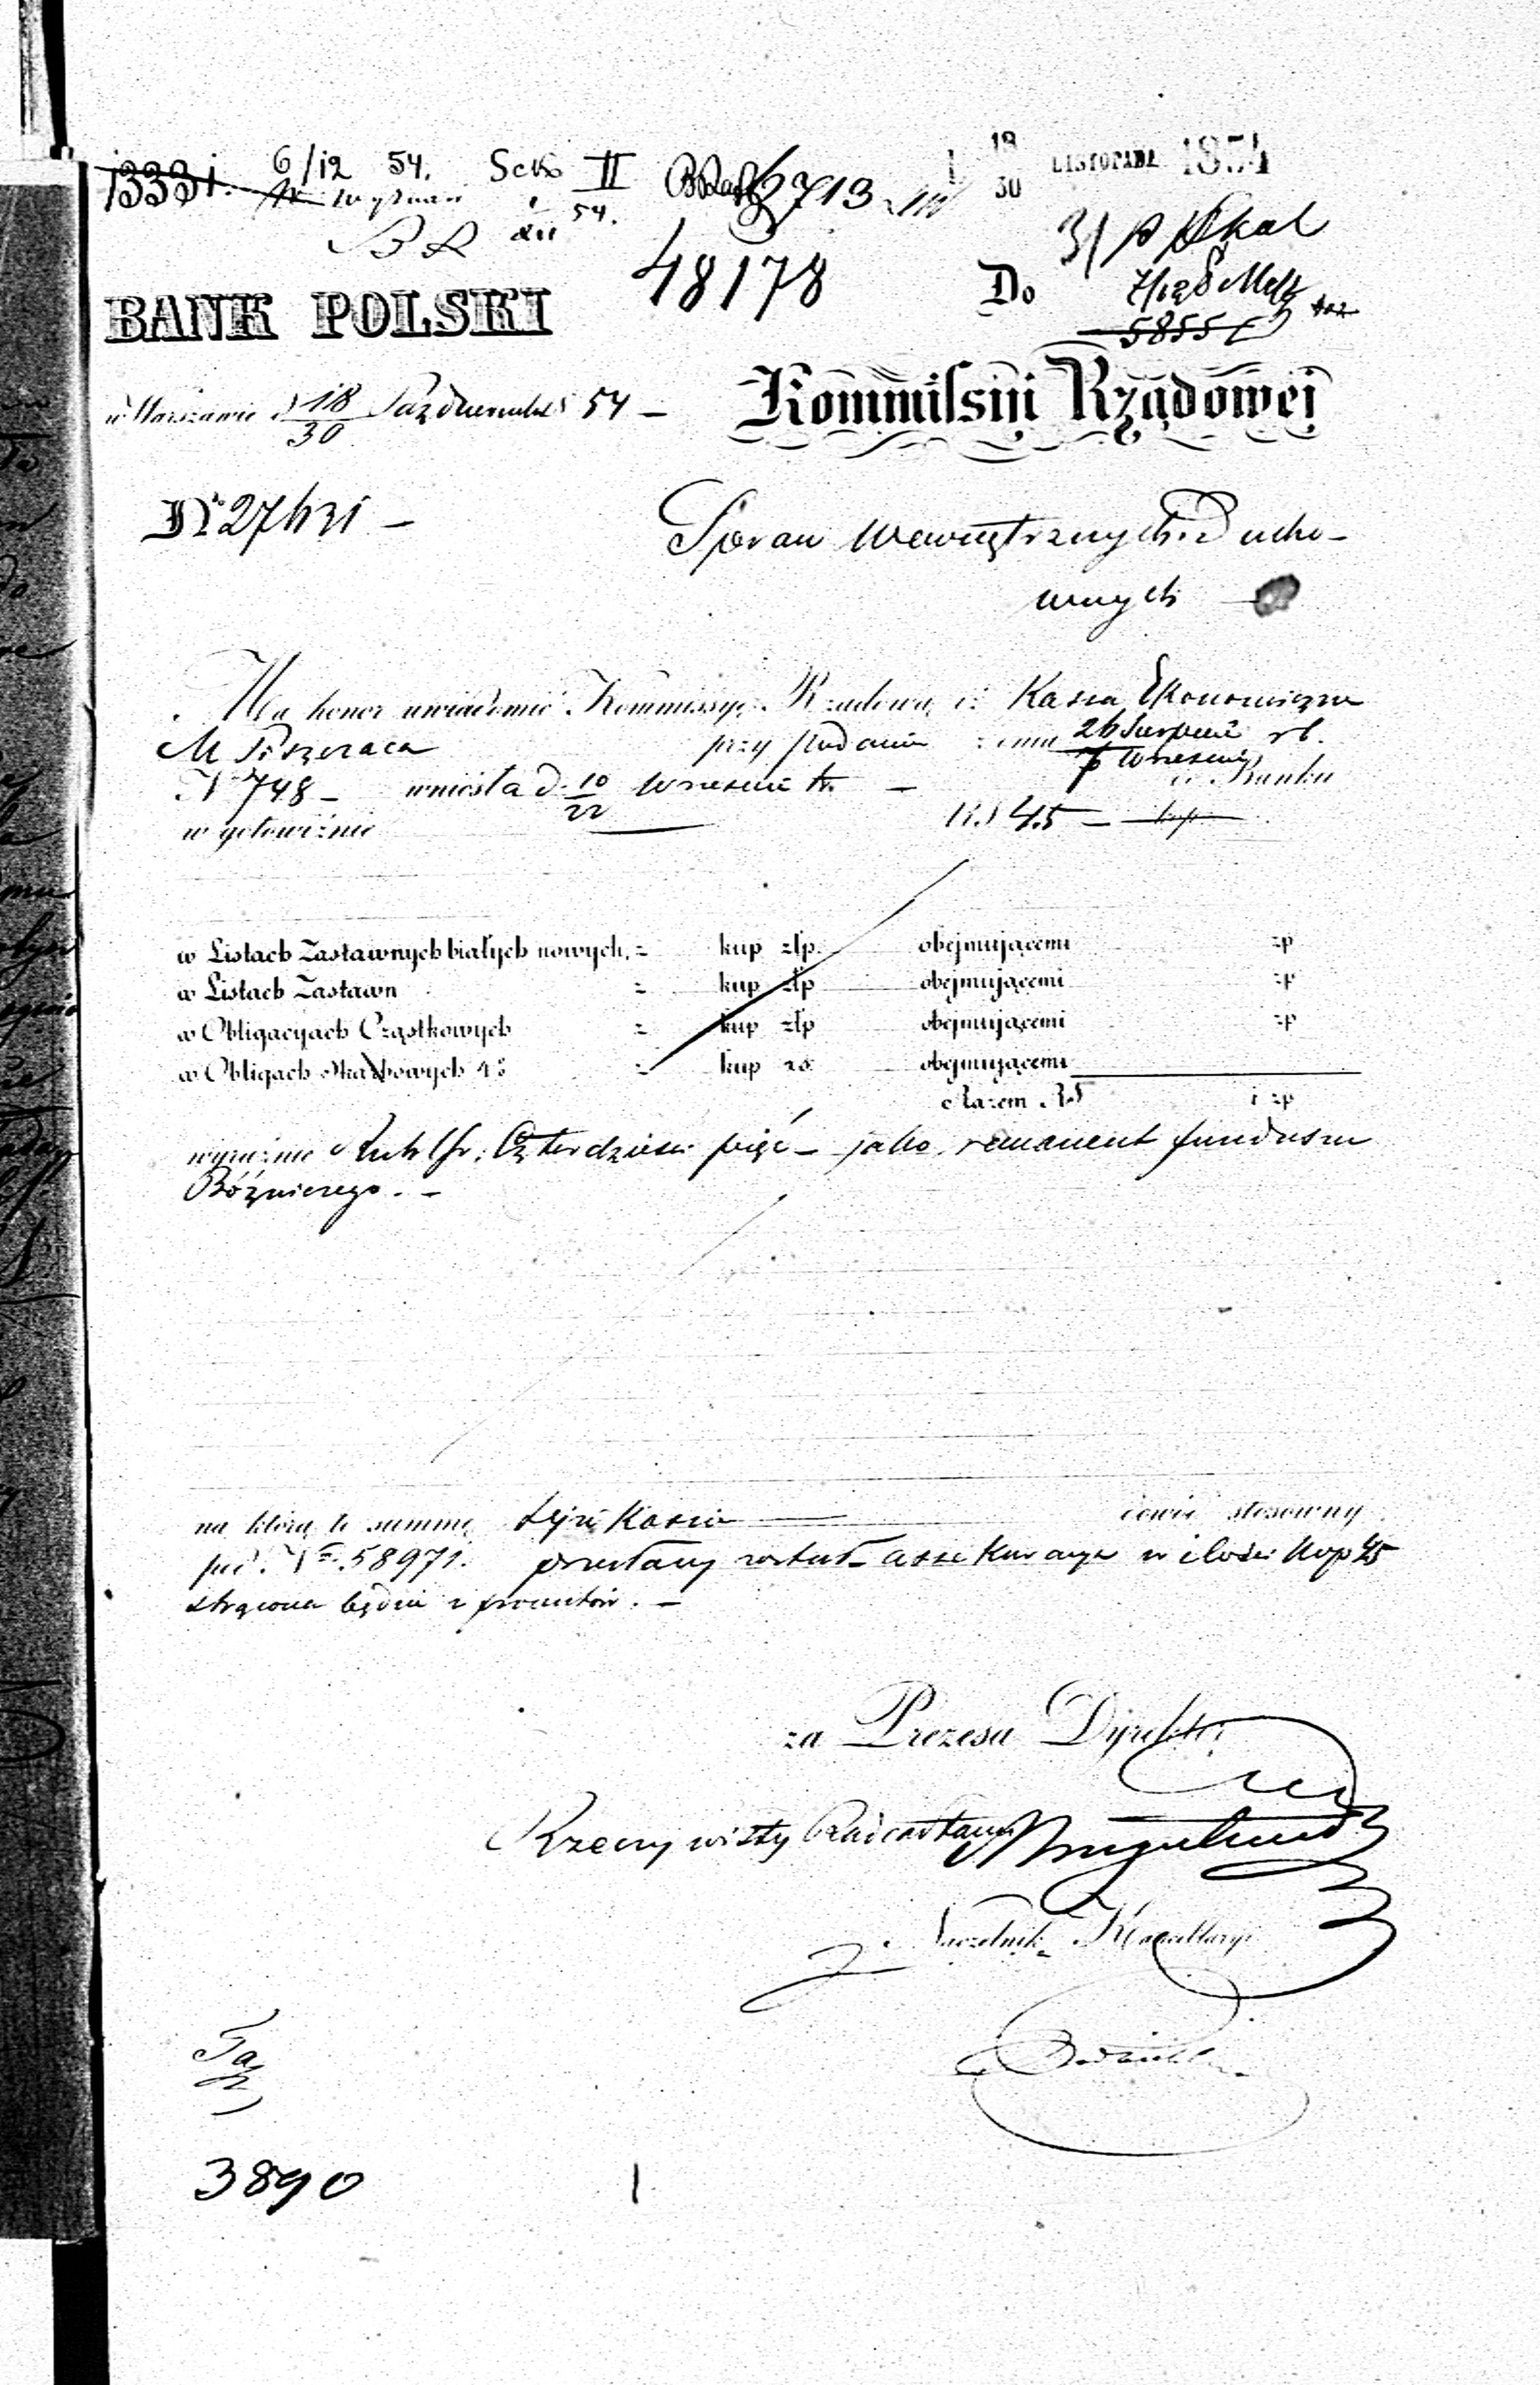 13331. 6/12 54. Sekc II
54.
18
30 LISTOPADA 1854
48178
Do
5855
BANK POLSKI
Kommissyi Rządowej
w Warszawie d 18/30 Października 54 –
Nr 27431 –
Spraw Wewnętrznych i Ducho-
wnych
Ma honor uwiadomić Kommissyę Rządową iż Kassa Ekonomiczna
M Przeraca przy podaniu z dnia 26 Sierpnia / 7 Września rb.
N 748 – wniosła d. 10/22 Września tr. – do Banku
w gotowiźnie R.S 45 – kop
w Listach Zastawnych białych nowych, = kup złp. obejmującemi zp
w Listach Zastawn = kup złp obejmującemi zp
w Obligacyach Cząstkowych = kup złp obejmującemi zp
w Obligach Skarbowych 4% = kup rs. obejmującemi
Razem RS i zp
wyraźnie Rubli sr. Czterdzieści pięć – jako remanent funduszu
Bóżniczego. –
na którą to summę tejże Kassie dowód stosowny
pod Nr 58971. przesłany został assekuracya w ilości kop 45
strącona będzie z procentów. –
za Prezesa Dyrektor
Rzeczywisty Radca Stanu
Naczelnik Kancellaryi
3890 1